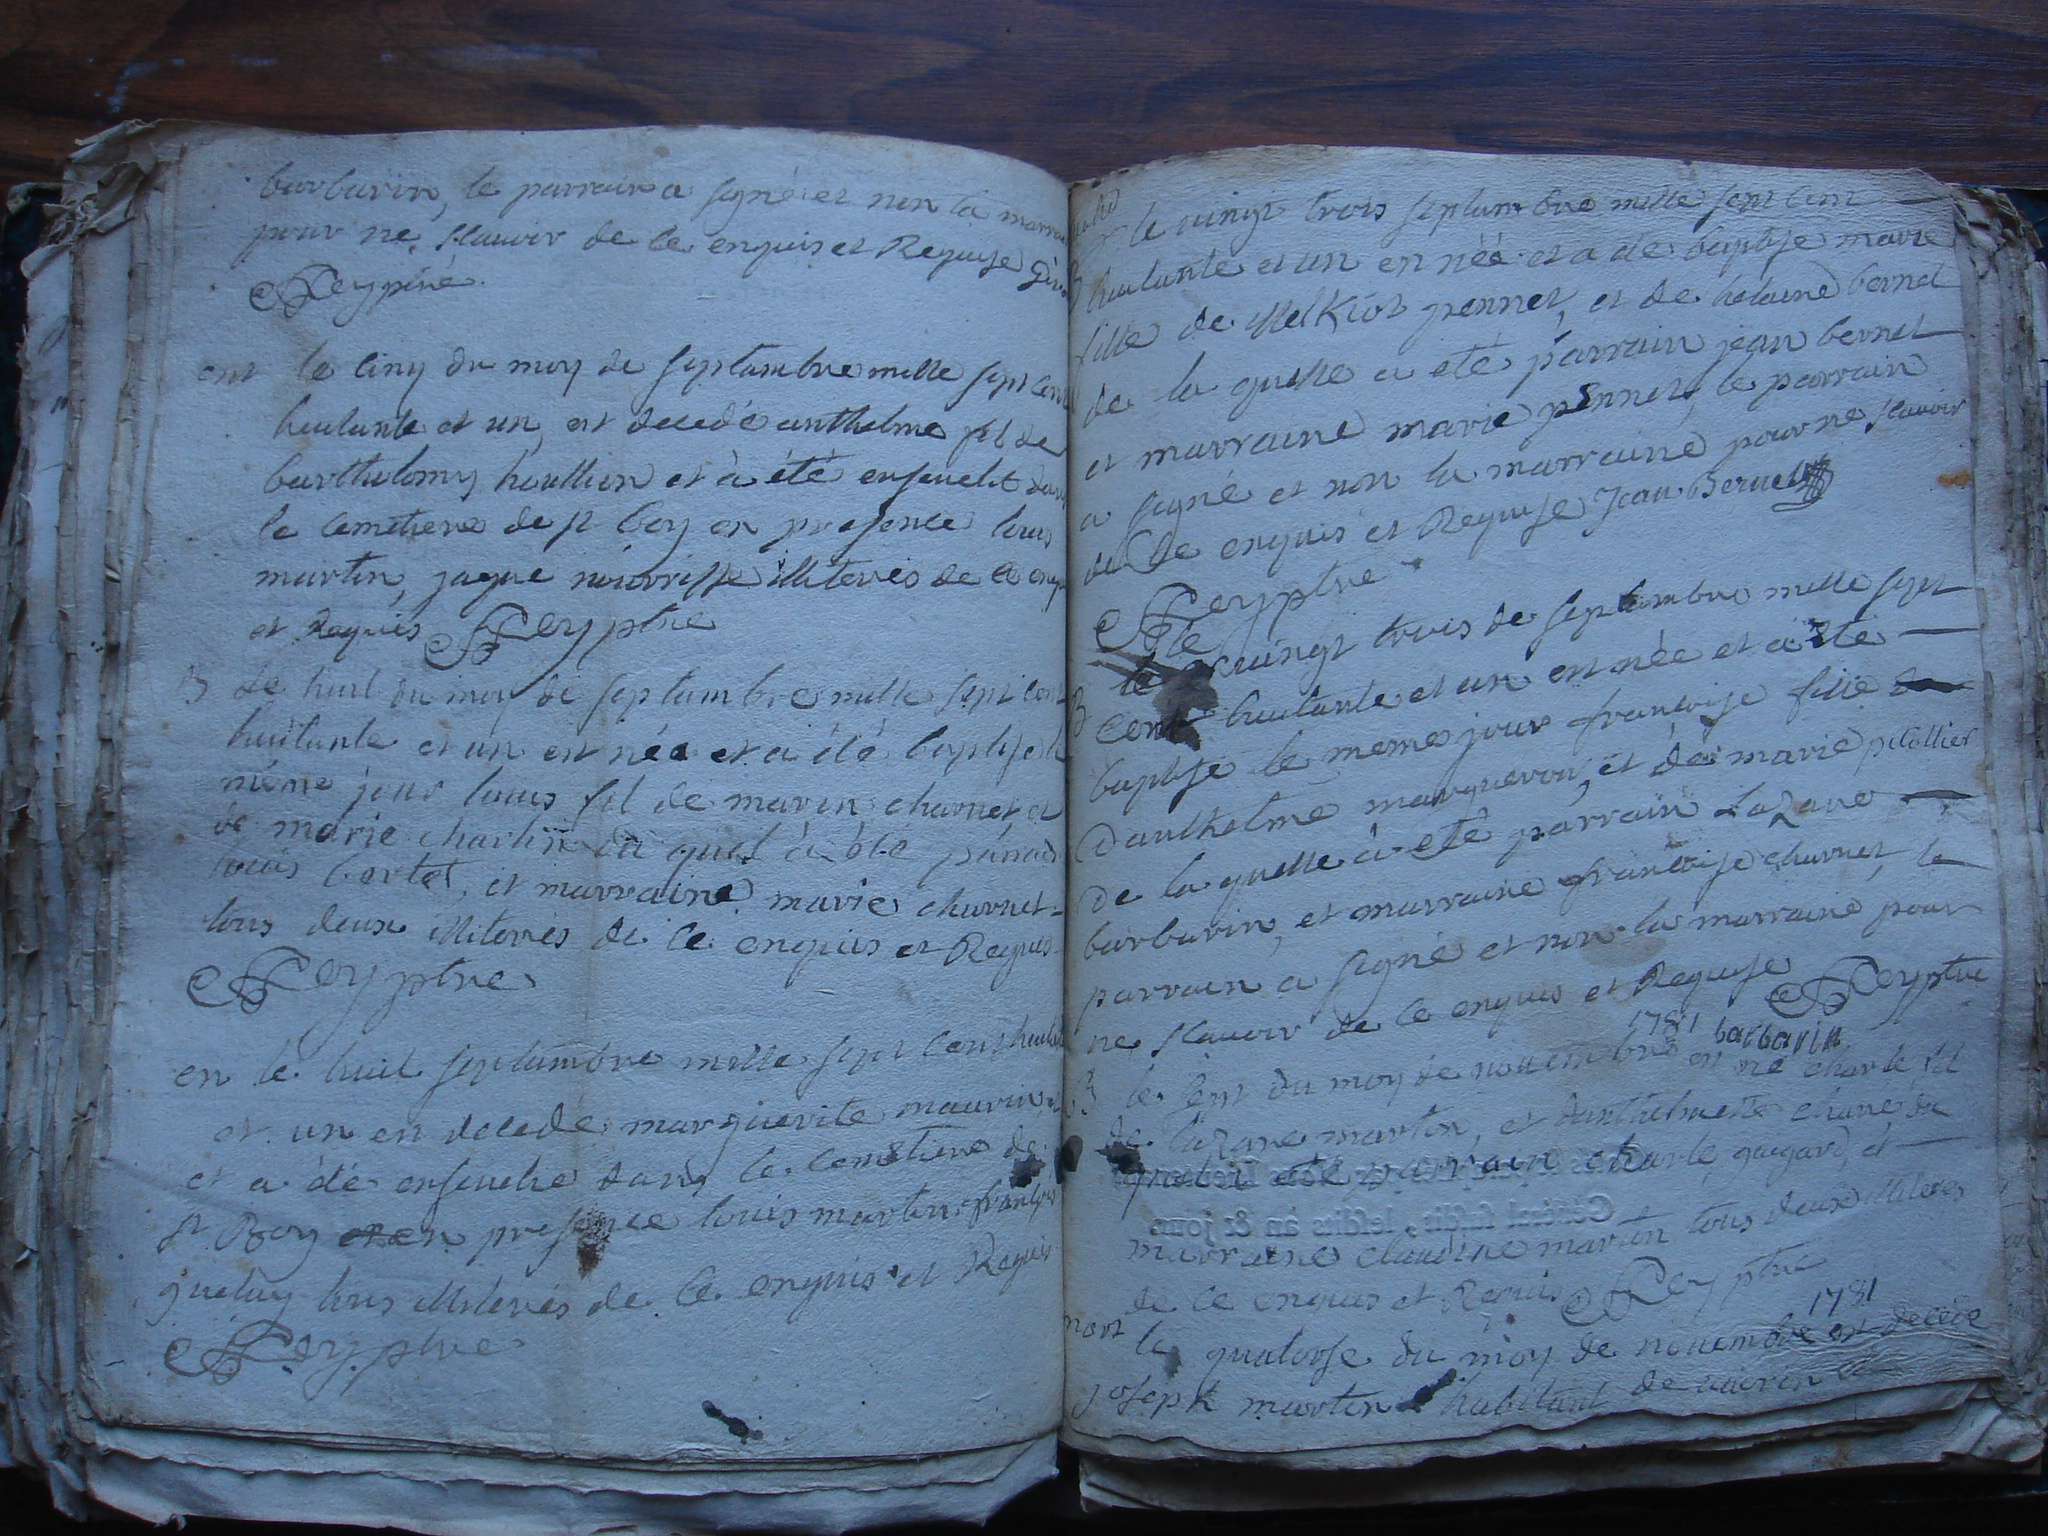 barbarin, le parrain a signé et non la marrai
pour ne sçauoir de ce enquis et Requise
Rey ptre
ent le cinq du moy de septambre mille sept cent
huitante et un est decedé anthelme fil de
barthelomy houllion et à été enseuelit dans
le cemetiere de st boy en presence louis
martin, jaque nourrisse illiterés de ce enqu
et Requis Rey ptre
B Le huit du moy de septambre mille sept cent
huitante et un est née et a été baptise le
même jour louis fil de marin charnet, et
de marie charlin du quel à été parrain
louis bertet, et marraine marie charnet
tous deux illiterés de ce enquis et Requis
Rey ptre
en le huit septambre mille sept cens huitan
et un en decede marguerite maurin
et a été enseuelie dans le cemetiere de
st Boy en presence louis martin françois
tous illiterés de ce enquis et Requis
Rey ptre
le vingt trois septambre mille sept cent
B huitante et un en née et a été baptise marie
fille de Melkiot pennet, et de helaine bernet
de la quelle a eté parrain jean bernet
et marraine marie pennet, le parrain
a signé et non la marraine pour ne sçauoir
de ce enquis et Requise Jean Bernet
Rey ptre
le
B le vingt trois de septambre mille sept
cent huitante et un est née et a été
baptise le meme jour françoise fille
Danthelme marqueron, et de marie pelollier
De la quelle à eté parrain Lazare
barbarin, et marraine françoise charnet, le
parrain a signé et non la marraine pour
ne sçauoir de ce enquis et Requise Rey ptre
1781 barbarin
B le sept du moy de nouembre en né charle fil
de lazare martin, et danthelmette du
quel a été parrain charle et
marraine claudine martin tous deux illiteres
de ce enquis et Requis Rey ptre
1781
mort le quatorse du moy de nouembre est decede
joseph martin habitant de